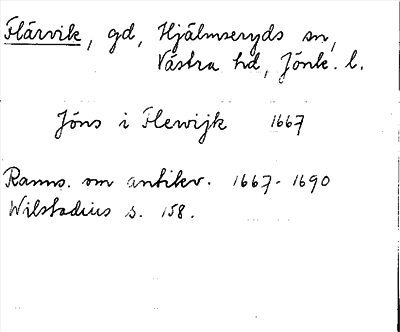 Flärvik, gd, Hjälmseryds sn,
Västra hd, Jönk. l.
Jöns i Flewijk 1667
Ranns. om antikv. 1667-1690
Wilstadius s. 158.